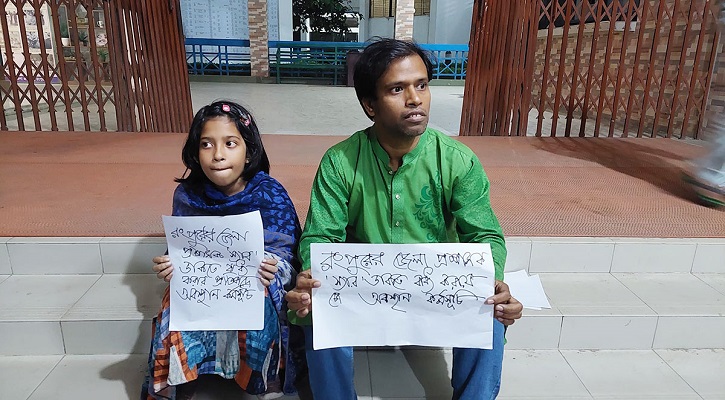 রংপুরের জেলা
প্রশাসক 'স্যার'
ডাকতে বাধ্য
করার প্রতিবাদে
অবস্থান কর্মসূচি
রংপুরের জেলা প্রশাসক
'স্যার' ডাকতে বাধ্য করায়
অবস্থান কর্মসূচি